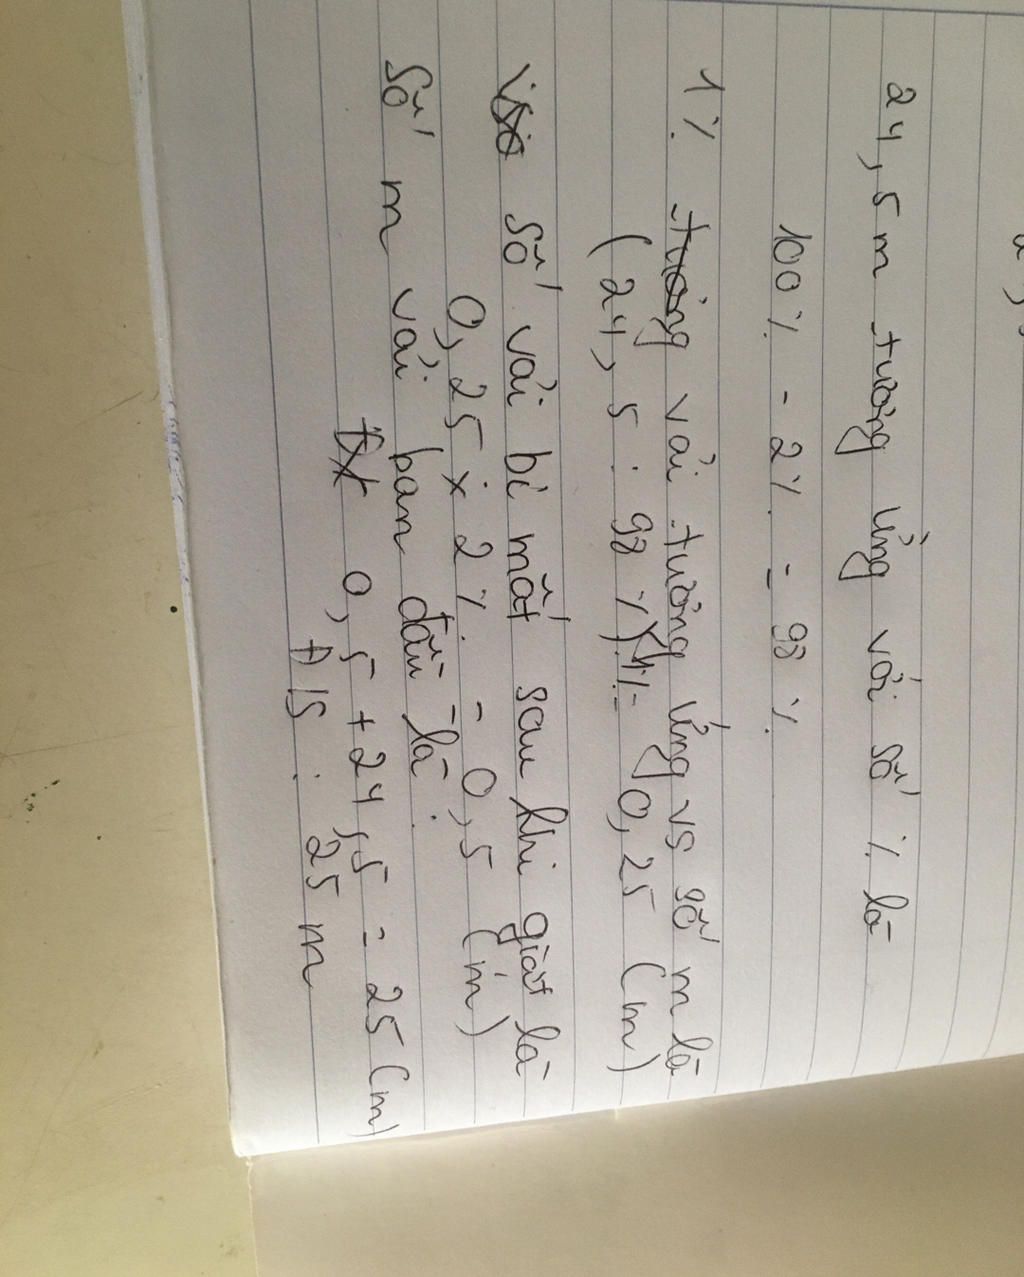 24,5 m tương ứng với số % là
100% - 2% = 98%
1% vải tương ứng vs số m là
(24,5 : 98%) x 1% = 0,25 (m)
Số vải bị mất sau khi giặt là
0,25 x 2% = 0,5 (m)
Số m vải ban đầu là :
0,5 + 24,5 = 25 (m)
Đ/S : 25 m